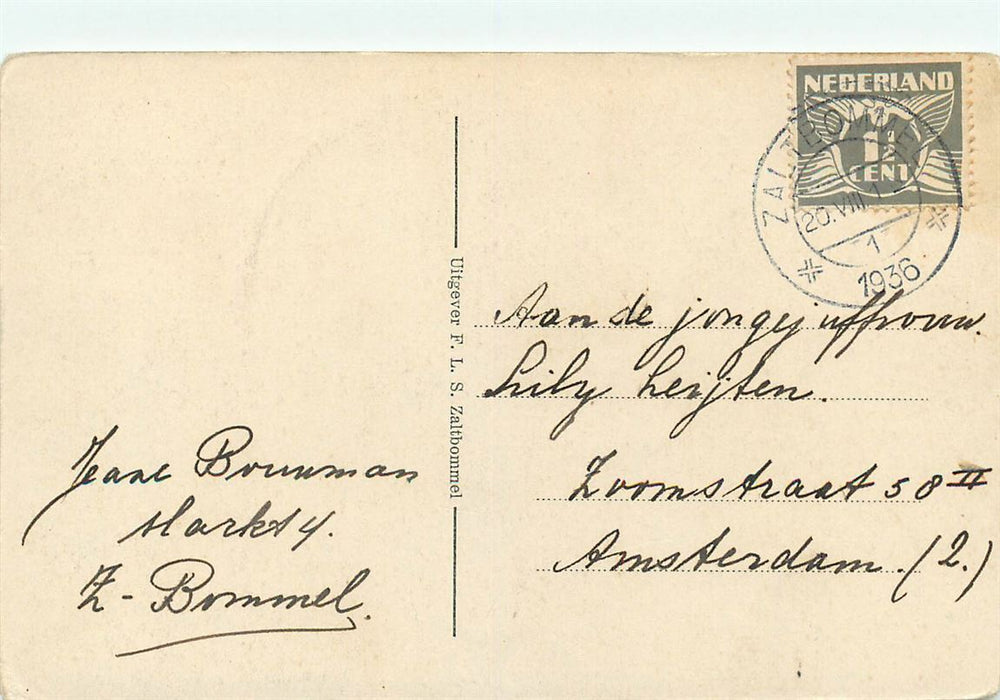 NEDERLAND
1½
CENT
ZALTBOMMEL
20.VIII
1
1936
Uitgever F. L. S. Zaltbommel
Aan de jongejuffrouw.
Lily Leijten.
Zoomstraat 58 II
Amsterdam. (2.)
Bouwman
Markt 4.
Z-Bommel.